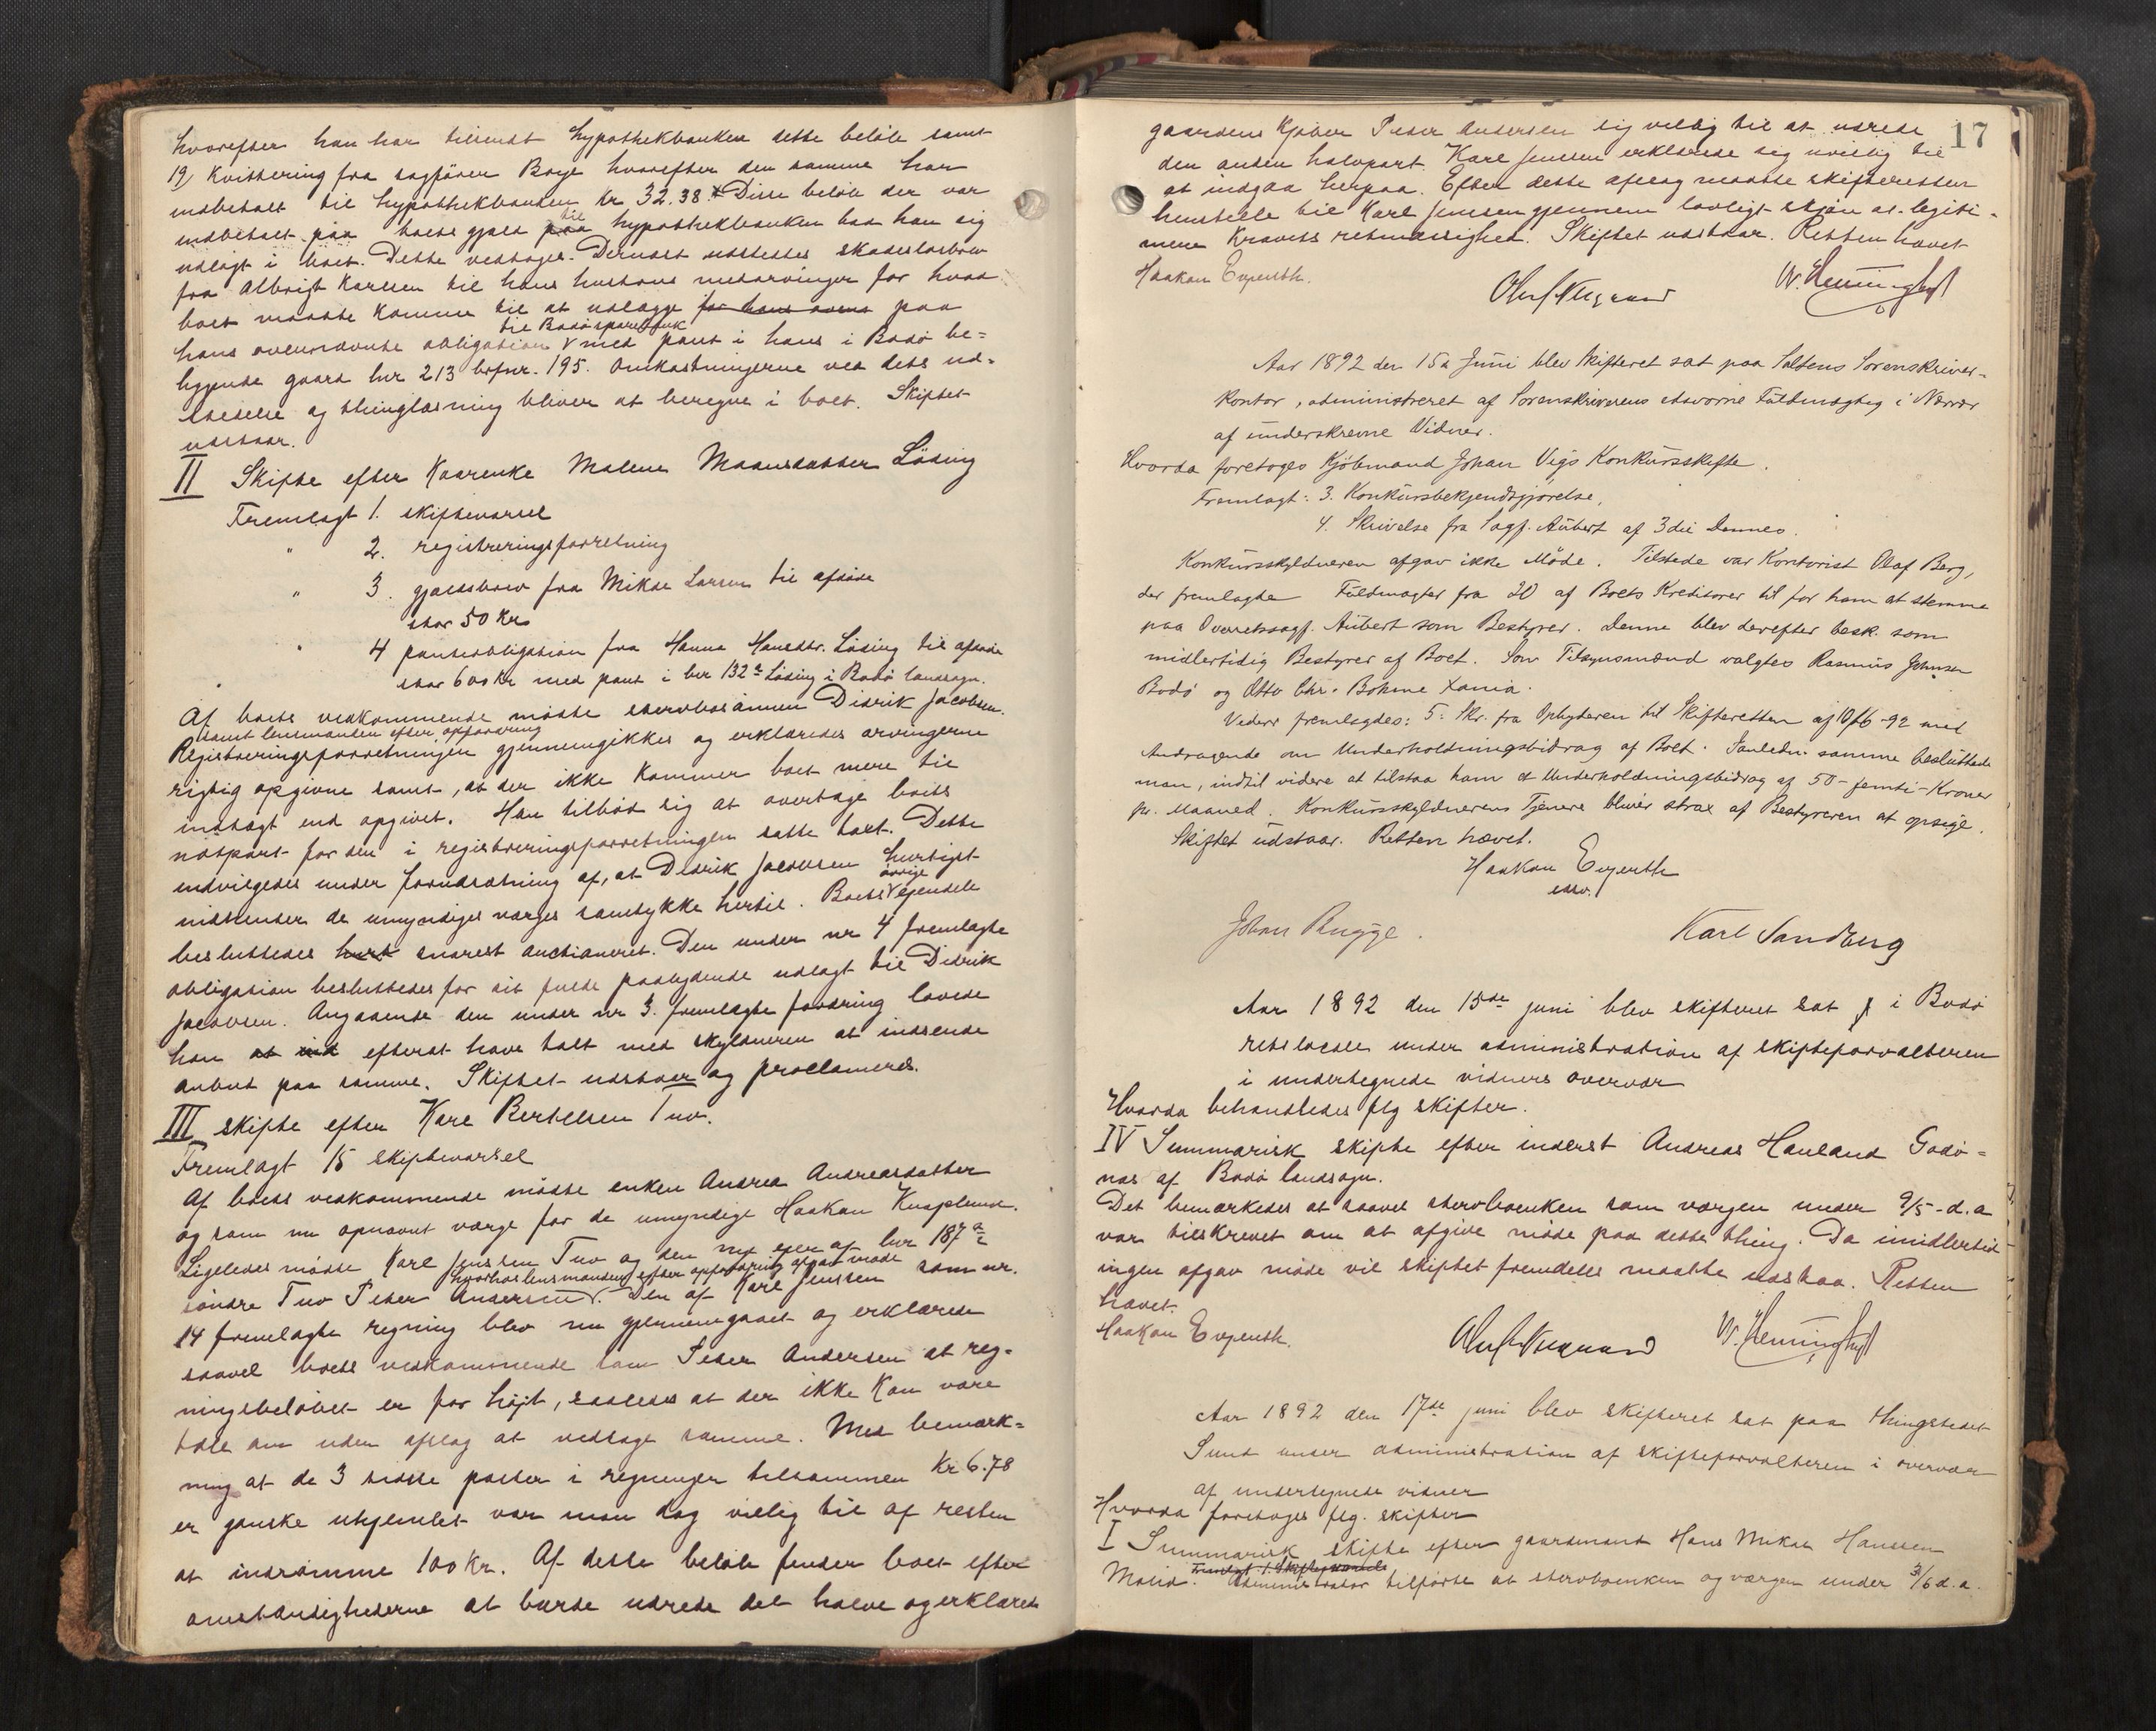 hvorefter han har tilsendt hypothekbanken dette beløb samt
19) Kvittering fra sagfører Borge hvorefter den samme har
indbetalt til hypothekbanken kr 32.38. Disse beløb der var
indbetalt paa boets gjæld til hypothekbanken bad han sig
udlagt i boet. Dette vedtoges. Dernæst udstedtes skadesløsbrev
fra Albrigt Karlsen til hans hustrus medarvinger for hvad
boet maatte komme til at udlægge for hans paa
til Bodø sparebank
hans ovennævnte obligation med pant i hans i Bodø be=
liggende gaard lnr 213 brfnr. 195. Omkostningerne ved dets ud=
stedelse og thinglæsning bliver at beregne i boet. Skiftet
udstaar.
II Skifte efter Kaarenke Malene Maansdatter Løding
Fremlagt 1. skiftevarsel
" 2. registreringsforretning
" 3. gjældsbrev fra Mikal Larsen til afdøde
stor 50 Kr
" 4 panteobligation fra Hanna Hansdtr. Løding til afdøde
stor 600 kr med pant i lnr 132 a Løding i Bodø landsogn.
Af boets vedkommende mødte stervbosønnen Didrik Jacobsen.
samt lensmanden efter opfordring
Registreringsforretningen gjennemgikkes og erklæredes arvingerne
rigtig opgivne samt, at der ikke kommer boet mere til
indtægt end opgivet. Han tilbød sig at overtage boets
notpart for den i registreringsforretningen satte taxt. Dette
indvilgedes under forudsætning af, at Didrik Jacobsen hurtigst
øvrige
indsender de umyndiges værges samtykke hertil. Boets ejendele
besluttedes hurt snarest auctioneret. Den under nr 4 fremlagte
obligation besluttedes for sit fulde paalydende udlagt til Didrik
Jacobsen. Angaaende den under nr 3. fremlagte fordring lovede
han at ind efterat have talt med skyldneren at indsende
anbud paa samme. Skiftet udstaaer og proclameres.
III skifte efter Karl Bertelsen Tuv.
Fremlagt 15 skiftevarsel
Af boets vedkommende mødte enken Andrea Andreasdatter
og som nu opnævnt værge for de umyndige Haakan Knaplund.
Ligeledes mødte Karl Jenssen Tuv og den nye ejer af lnr 187 a
hvorhos lensmanden efter opfordring afgav møde
søndre Tuv Peder Andersen. Den af Karl Jenssen som nr.
14 fremlagte regning blev nu gjennemgaaet og erklærede
saavel boets vedkommende som Peder Andersen at reg=
ningsbeløbet er for højt, saaledes at der ikke kan være
tale om uden afslag at vedtage samme. Med bemærk=
ning at de 3 sidste poster i regningen tilsammen Kr 6.78
er ganske uhjemlet var man dog villig til af resten
at indrømme 100 kr. Af dette beløb finder boet efter
omstændighederne at burde udrede det halve og erklærede
17
gaardens kjøber Peder Andersen sig villig til at udrede
den anden halvpart. Karl Jenssen erklærede sig uvillig til
at indgaa herpaa. Efter dette afslag maatte skifteretten
henstille til Karl Jenssen gjennem lovligt skjøn at legiti-
mere kravets retmæssighed. Skiftet udstaar. Retten hævet
Haakan Evjenth.
Aar 1892 den 15de Juni blev Skifteret sat paa Saltens Sorenskriver-
kontor, administreret af Sorenskriverens edsvorne Fuldmægtig i Nærvær
af underskrevne Vidner.
Hvorda foretoges Kjøbmand Johan Vigs Konkursskifte.
Fremlagt: 3. Konkursbekjendtgjørelse,
4. Skrivelse fra Sagf. Aubert af 3die Dennes.
Konkursskyldneren afgav ikke Møde. Tilstede var Kontorist Olaf Berg,
der fremlagde Fuldmagter fra 20 af Boets Kreditorer til for ham at stemme
paa Overretssagf. Aubert som Bestyrer. Denne blev derefter besk. som
midlertidig Bestyrer af Boet. Som Tilsynsmænd valgtes Rasmus Johnsen
Bodø og Otto Chr. Bohme Xania.
Videre fremlagdes: 5. Skr. fra Ophyderen til Skifteretten af 10/6-92 med
Andragende om Underholdningsbidrag af Boet. I anledn. samme besluttede
man, indtil videre at tilstaa ham et Underholdningsbidrag af 50-femti-Kroner
pr. Maaned. Konkursskyldnerens Tjenere bliver strax af Bestyreren at opsige.
Skiftet udstaar. Retten hævet.
Haakan Evjenth
edsv.
Johan Rugge. Karl Sandberg
Aar 1892 den 15de juni blev skifteret sat i Bodø
retslocale under administration af skifteforvalteren
i undertegnede vidners overvær
Hvorda behandledes flg skifter.
IV Summarisk skifte efter inderst Andreas Hanland Godø=
nes af Bodø landsogn.
Det bemærkedes at saavel stervboenken som værgen under 9/5 - d.a
var tilskrevet om at afgive møde paa dette thing. Da imidlertid
ingen afgav møde vil skiftet fremdeles maatte udstaa. Retten
hævet.
Haakan Evjenth.
Aar 1892 den 17de juni blev skifteret sat paa thingstedet
Sund under administration af skifteforvalteren i overvær
af undertegnede vidner
Hvorda foretoges flg. skifter
I Summarisk skifte efter gaardmand Hans Mikal Hanssen
Fremlagt 1. Skiftevarsel
Administrator tilførte at stervboenken og værgen under 3/6 d.a.